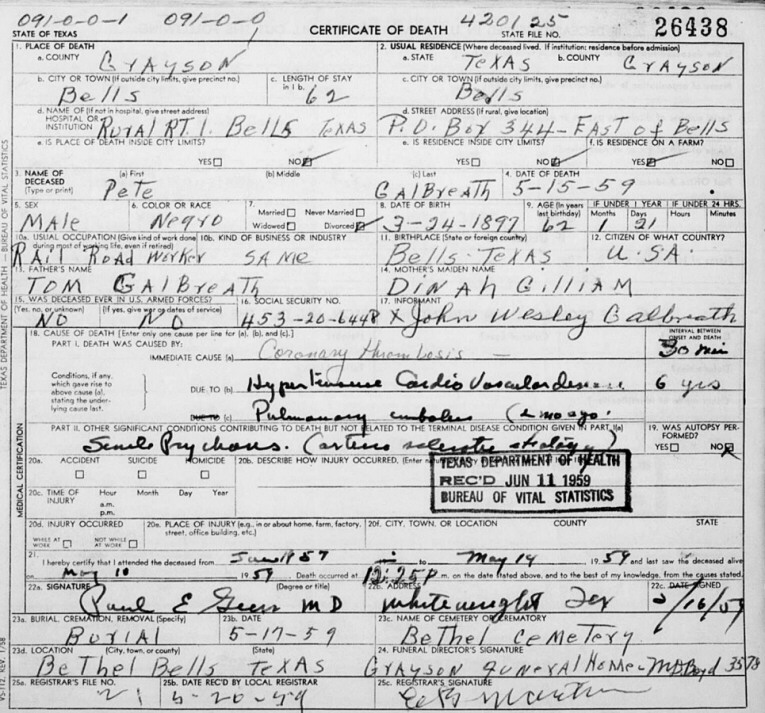 091-0-0-1 091-0-0 420125
STATE OF TEXAS CERTIFICATE OF DEATH STATE FILE NO. 26438
1. PLACE OF DEATH 2. USUAL RESIDENCE (Where deceased lived. If institution: residence before admission)
a. COUNTY GRAYSON a. STATE TEXAS b. COUNTY GRAYSON
b. CITY OR TOWN (If outside city limits, give precinct no.) c. LENGTH OF STAY in 1 b. c. CITY OR TOWN (If outside city limits, give precinct no.)
Bells 62 Bells
d. NAME OF (If not in hospital, give street address) HOSPITAL OR INSTITUTION d. STREET ADDRESS (If rural, give location)
Rural RT. 1. Bells TEXAS P.O. Box 344 - EAST of Bells
e. IS PLACE OF DEATH INSIDE CITY LIMITS? e. IS RESIDENCE INSIDE CITY LIMITS? f. IS RESIDENCE ON A FARM?
YES NO YES NO YES NO
3. NAME OF DECEASED (Type or print) (a) First (b) Middle (c) Last 4. DATE OF DEATH
Pete GALBREATH 5-15-59
5. SEX 6. COLOR OR RACE 7. Married Never Married Widowed Divorced 8. DATE OF BIRTH 9. AGE (In years last birthday) IF UNDER 1 YEAR IF UNDER 24 HRS. Months Days Hours Minutes
MALE Negro 3-24-1897 62 1 21
10a. USUAL OCCUPATION (Give kind of work done during most of working life, even if retired) 10b. KIND OF BUSINESS OR INDUSTRY 11. BIRTHPLACE (State or foreign country) 12. CITIZEN OF WHAT COUNTRY?
RAIL ROAD WORKER SAME Bells TEXAS U.S.A.
13. FATHER'S NAME 14. MOTHER'S MAIDEN NAME
TOM GALBREATH DINAH GILLIAM
15. WAS DECEASED EVER IN U.S. ARMED FORCES? 16. SOCIAL SECURITY NO. 17. INFORMANT
(Yes, no, or unknown) (If yes, give war or dates of service)
NO NO 453-20-6448 X John Wesley Galbreath
18. CAUSE OF DEATH [Enter only one cause per line for (a), (b), and (c).] INTERVAL BETWEEN ONSET AND DEATH
PART I. DEATH WAS CAUSED BY:
IMMEDIATE CAUSE (a) Coronary thrombosis - 30 min
Conditions, if any, which gave rise to above cause (a), stating the underlying cause last.
DUE TO (b) Hypertensive Cardio Vascular disease 6 yrs
DUE TO (c) Pulmonary embolus (2 mo ago.
PART II. OTHER SIGNIFICANT CONDITIONS CONTRIBUTING TO DEATH BUT NOT RELATED TO THE TERMINAL DISEASE CONDITION GIVEN IN PART I(a) 19. WAS AUTOPSY PERFORMED?
Senile Psychosis. (arterio sclerotic etiology) YES NO
20a. ACCIDENT SUICIDE HOMICIDE 20b. DESCRIBE HOW INJURY OCCURRED.
TEXAS DEPARTMENT OF HEALTH
REC'D JUN 11 1959
BUREAU OF VITAL STATISTICS
20c. TIME OF INJURY Hour Month Day Year
a.m.
p.m.
20d. INJURY OCCURRED 20e. PLACE OF INJURY (e.g., in or about home, farm, factory, street, office building, etc.) 20f. CITY, TOWN, OR LOCATION COUNTY STATE
WHILE AT WORK NOT WHILE AT WORK
21. I hereby certify that I attended the deceased from 1957 to May 14 1959 and last saw the deceased alive
on May 10 1959 Death occurred at 12:25 P.m. on the date stated above, and to the best of my knowledge, from the causes stated.
22a. SIGNATURE (Degree or title) 22b. ADDRESS 22c. DATE SIGNED
Paul E MD Whitewright Tex 5/16/59
23a. BURIAL, CREMATION, REMOVAL (Specify) 23b. DATE 23c. NAME OF CEMETERY OR CREMATORY
BURIAL 5-17-59 BETHEL CEMETERY
23d. LOCATION (City, town, or county) (State) 24. FUNERAL DIRECTOR'S SIGNATURE
BETHEL Bells TEXAS GRAYSON FUNERAL HOME - Boyd 3578
25a. REGISTRAR'S FILE NO. 25b. DATE REC'D BY LOCAL REGISTRAR 25c. REGISTRAR'S SIGNATURE
21 5-20-59
TEXAS DEPARTMENT OF HEALTH — BUREAU OF VITAL STATISTICS
MEDICAL CERTIFICATION
VS-112, REV. 1/58